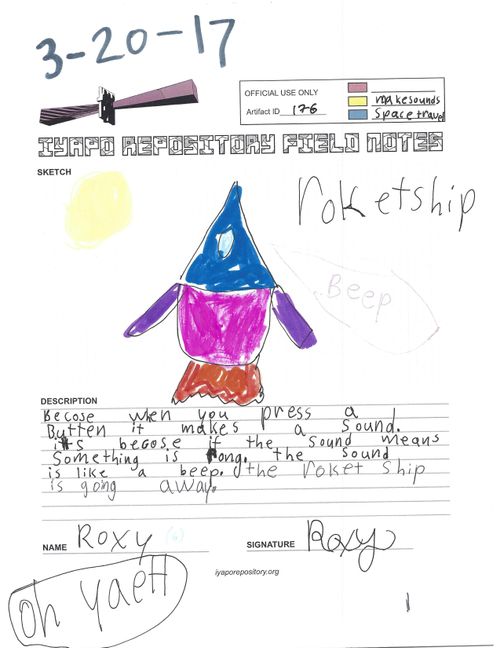 3-20-17
OFFICIAL USE ONLY
Artifact ID 176
makesounds
Space travel
IYAPO REPOSITORY FIELD NOTES
SKETCH
roketship
Beep
DESCRIPTION
Becose when you press a
Butten it makes a sound.
its becose if the sound means
Something is rong. the sound
is like a beep. the roket ship
is going away.
NAME Roxy (6)
SIGNATURE Roxy
iyaporepository.org
oh yaeH
1